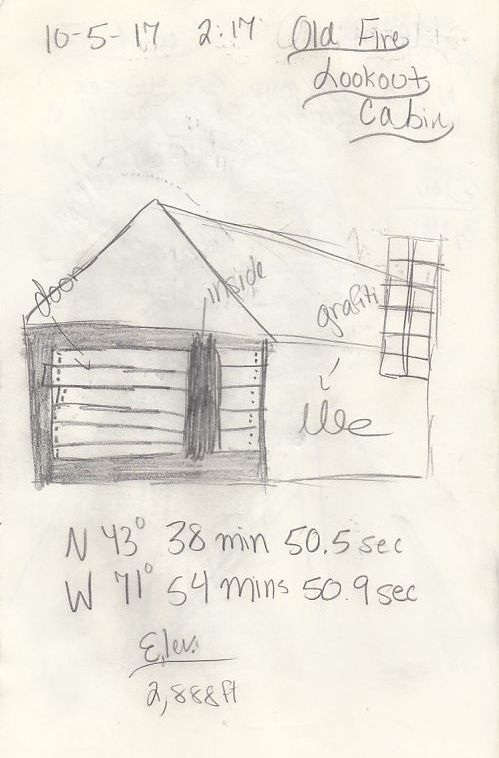 10-5-17 2:17 Old Fire
Lookout
Cabin
door
inside
grafiti
N 43° 38 min 50.5 sec
W 71° 54 mins 50.9 sec
Elev.
2,888ft